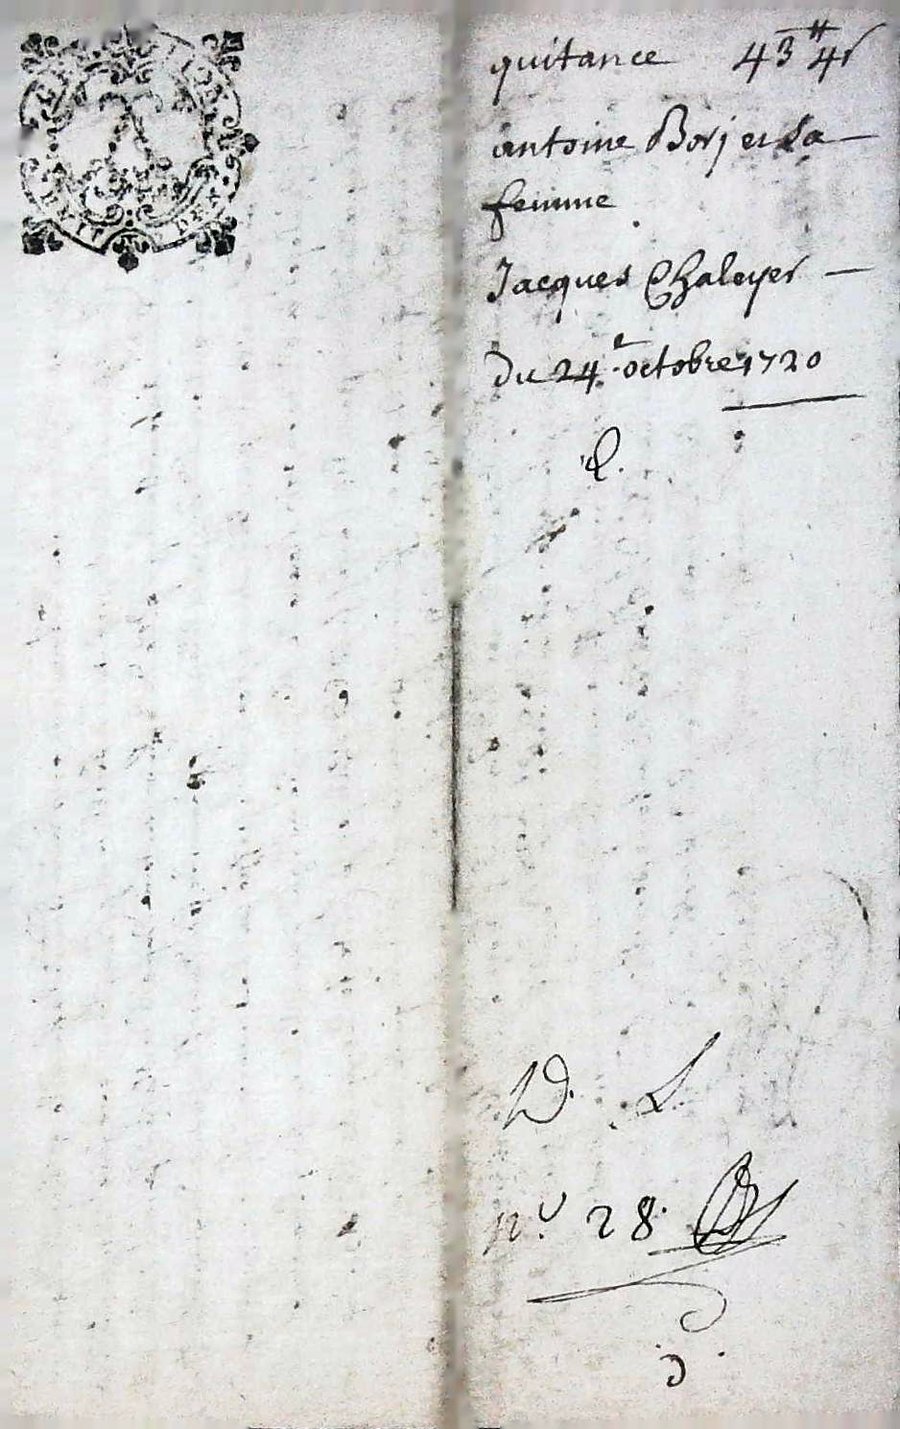 quitance 43# 4s
antoine Borj et Sa
femme
Jacques Chaleyer
Du 24e octobre 1720
D. L
n° 28.